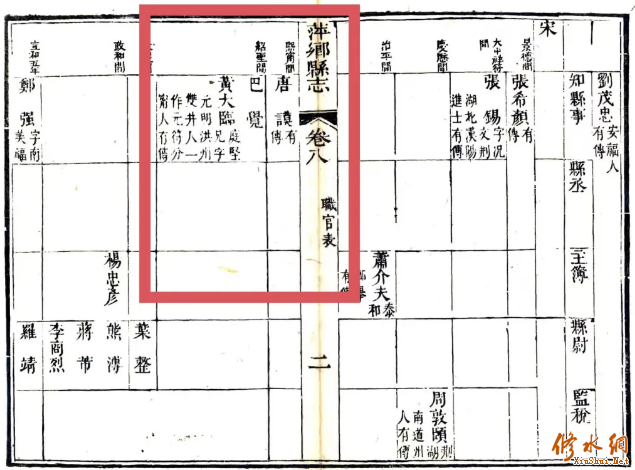 劉茂忠 安福人有傳
宋
知縣事
縣丞
主簿
縣尉
監稅
景德間
張希顏 有傳
大中祥符間
張錫 字況文刑湖北漢陽進士有傳
慶曆間
周敦頤 荆湖南道州人有傳
治平間
蕭介夫 泰和
有傳
萍鄉縣志
卷八
職官表
二
熙甯間
唐謨 有傳
紹聖間
巴覺
黃大臨 庭堅兄字元明洪州雙井人一作元符分甯人有傳
葉整
政和間
楊忠彥
熊溥
蔣芾
李商烈
宣和
鄭强 字南美福
羅靖
修水網
XiuShui.Net